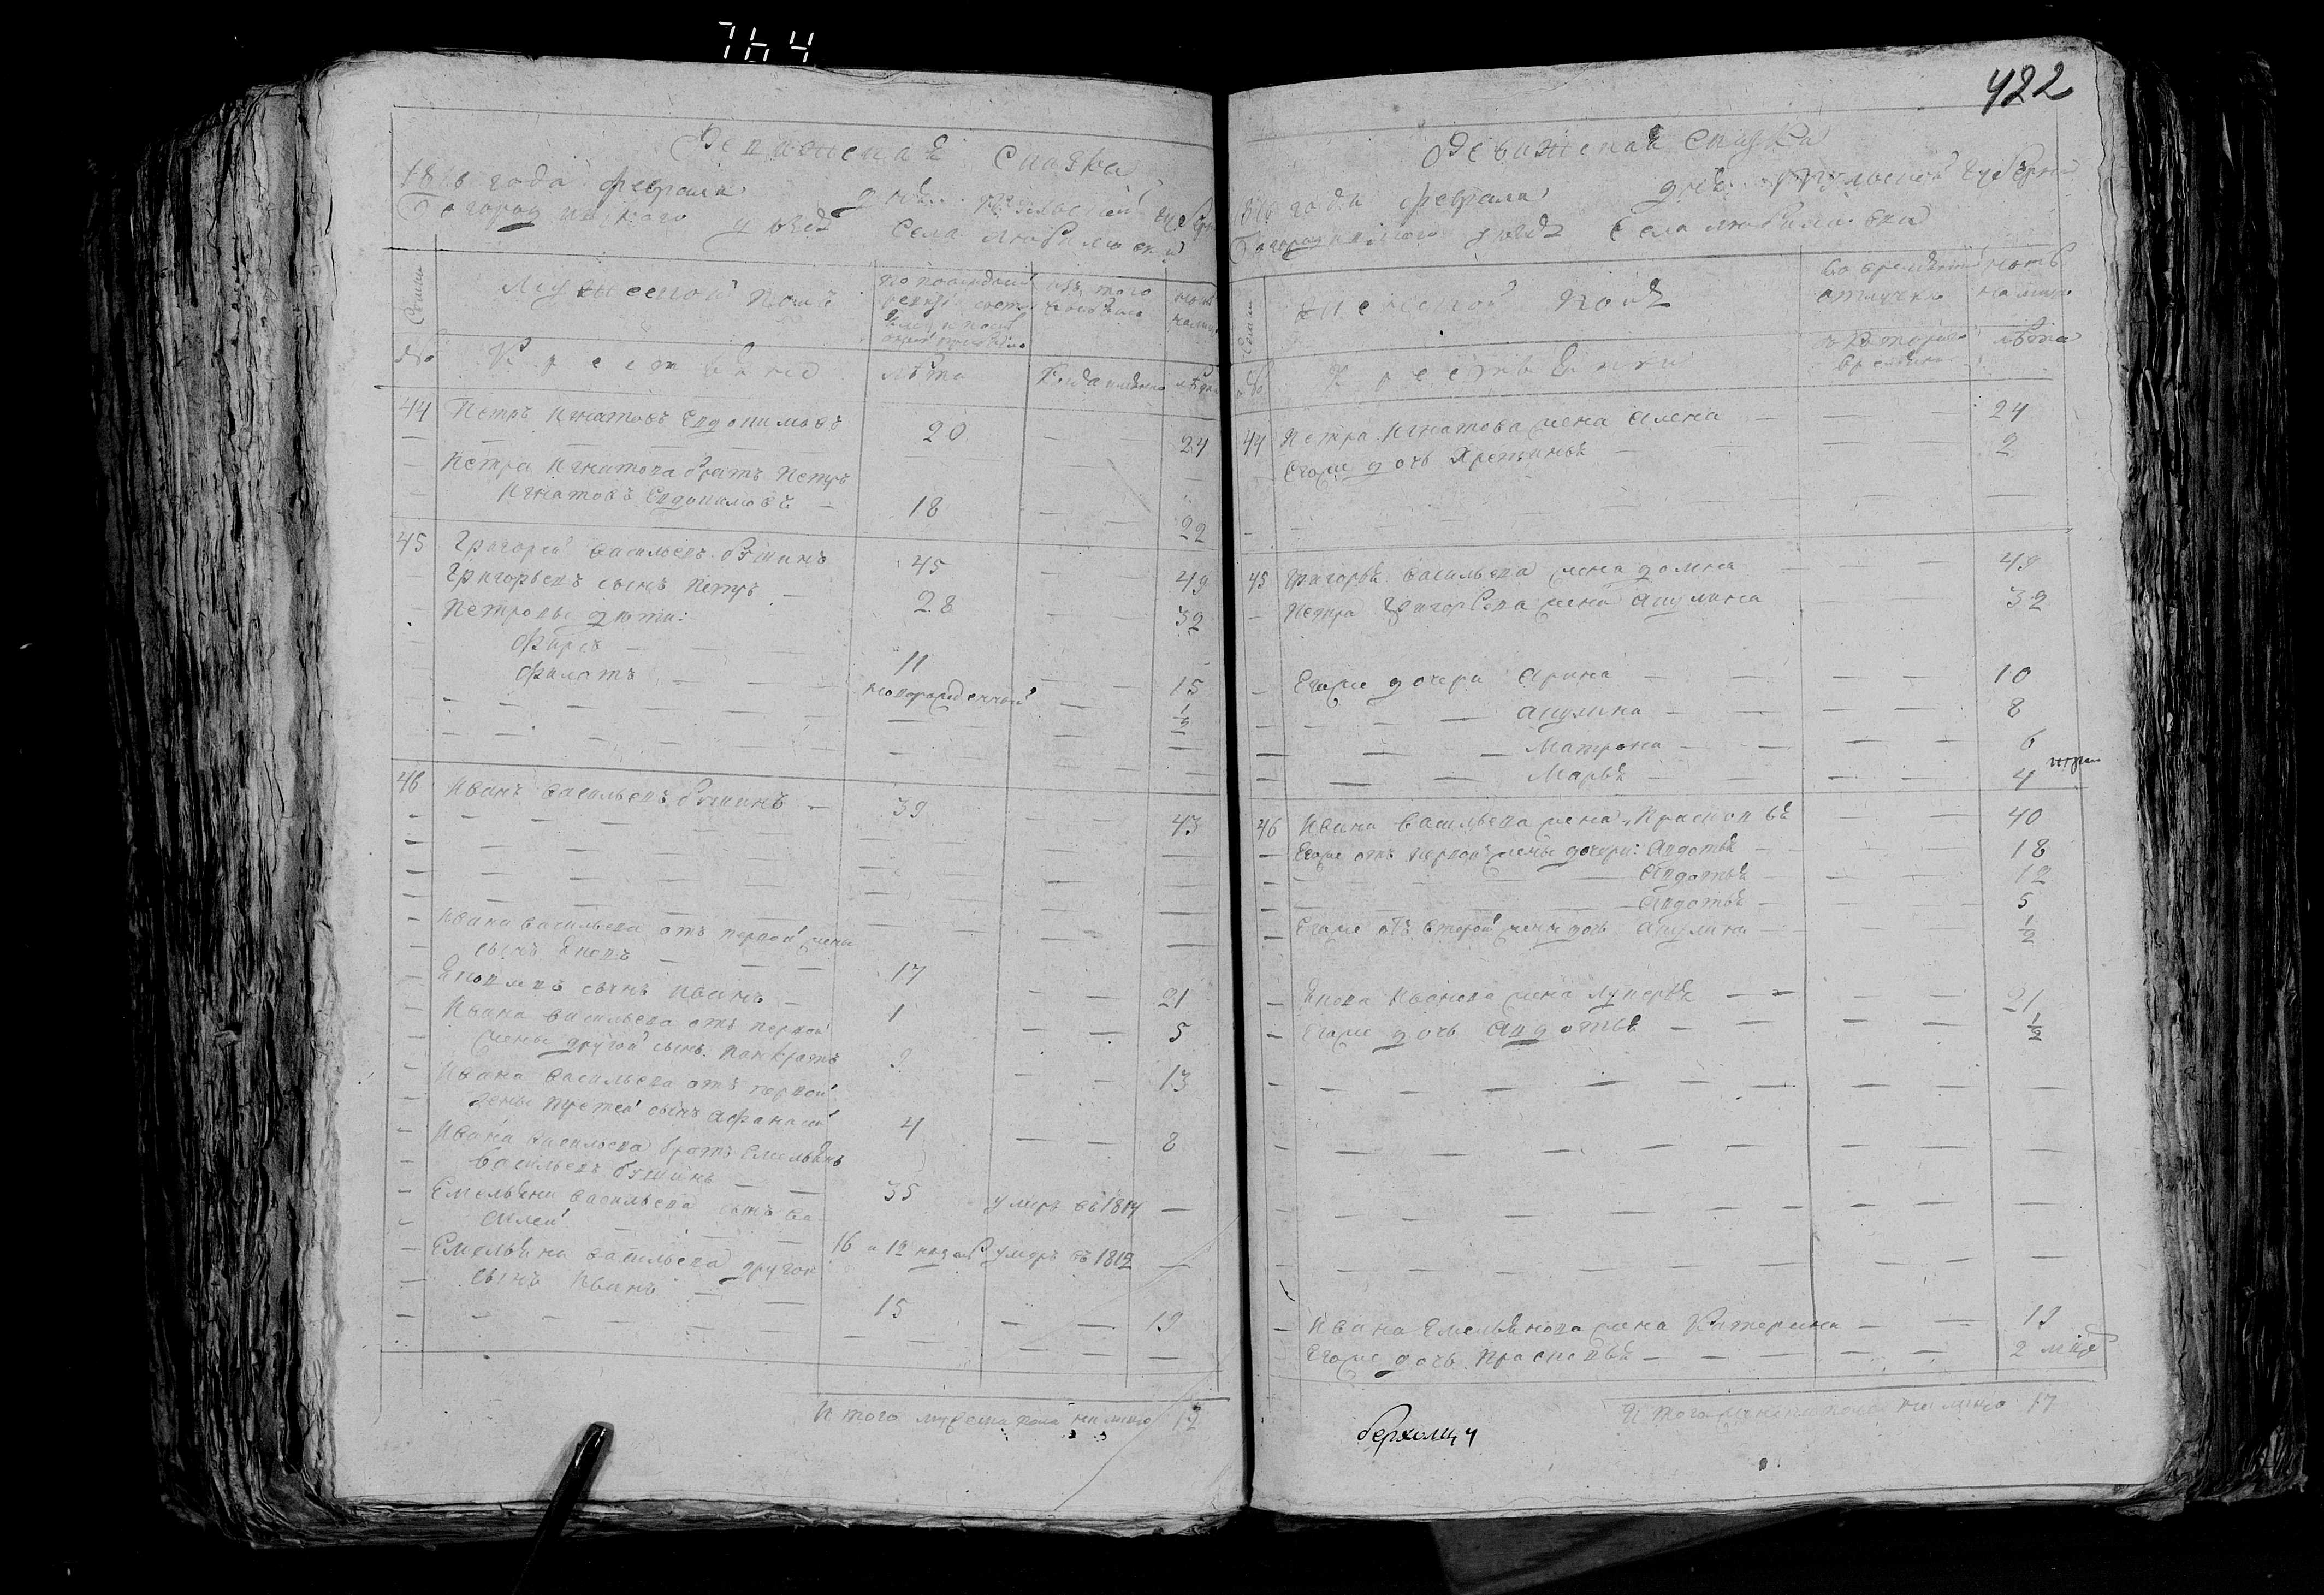 764
Ревижская Сказка
1816 года февраля дня. Тульской губерн
Богородицкого уезда Села Любимовки
Семьи
Мужеской полъ
По последней ревизи
изъ того
ныне на лицо
№
Крестьяне
лета
лета
44 Петръ Игнатовъ Евдокимовъ 20 24
Петра Игнатова братъ Петръ
Игнатовъ Евдокимовъ 18 22
45 Григорей Васильевъ 45 49
Григорьевъ сынъ Петръ 28 32
Петровы дети:
Фирсъ 11 15
Филатъ новорожденной 1/2
46 Иванъ Васильевъ 39 43
Ивана Васильева отъ первой жены
сынъ Яковъ 17 21
Яковлевъ сынъ Иванъ 1 5
Ивана Васильева отъ первой
жены другой сынъ Панкратъ 9 13
Ивана Васильева отъ первой
жены третей сынъ Афанасей 4 8
Ивана Васильева братъ Емельянъ
Васильевъ 35 умеръ въ 1814
Емельяна Васильева сынъ Ва-
силей 16 умеръ въ 1812
Емельяна Васильева другой
сынъ Иванъ 15 19
Итого мужеска пола на лицо 12
422
Ревижская Сказка
1816 года февраля дня. Тульской губерни
Богородицкого уезда Села Любимовки
Семьи
Женской полъ
Во временной отлучке
ныне на лицо
№
Крестьянки
с котораго времяни
лета
44 Петра Игнатова жена Алена 24
Егоже дочь Хрестинья 2
45 Григорья Васильева жена Домна 49
Петра Григорьева жена Акулина 32
Егоже дочери Арина 10
Акулина 8
Матрена 6
Марья 4
46 Ивана Васильева жена Прасковья 40
Егоже отъ первой жены дочери: Авдотья 18
Авдотья 12
Авдотья 5
Егоже отъ второй жены дочь Акулина 1/2
Якова Иванова жена Лукерья 21
Егоже дочь Авдотья 1/2
Ивана Емельянова жена Катерина 19
Егоже дочь Прасковья 2
Итого женска пола на лицо 17